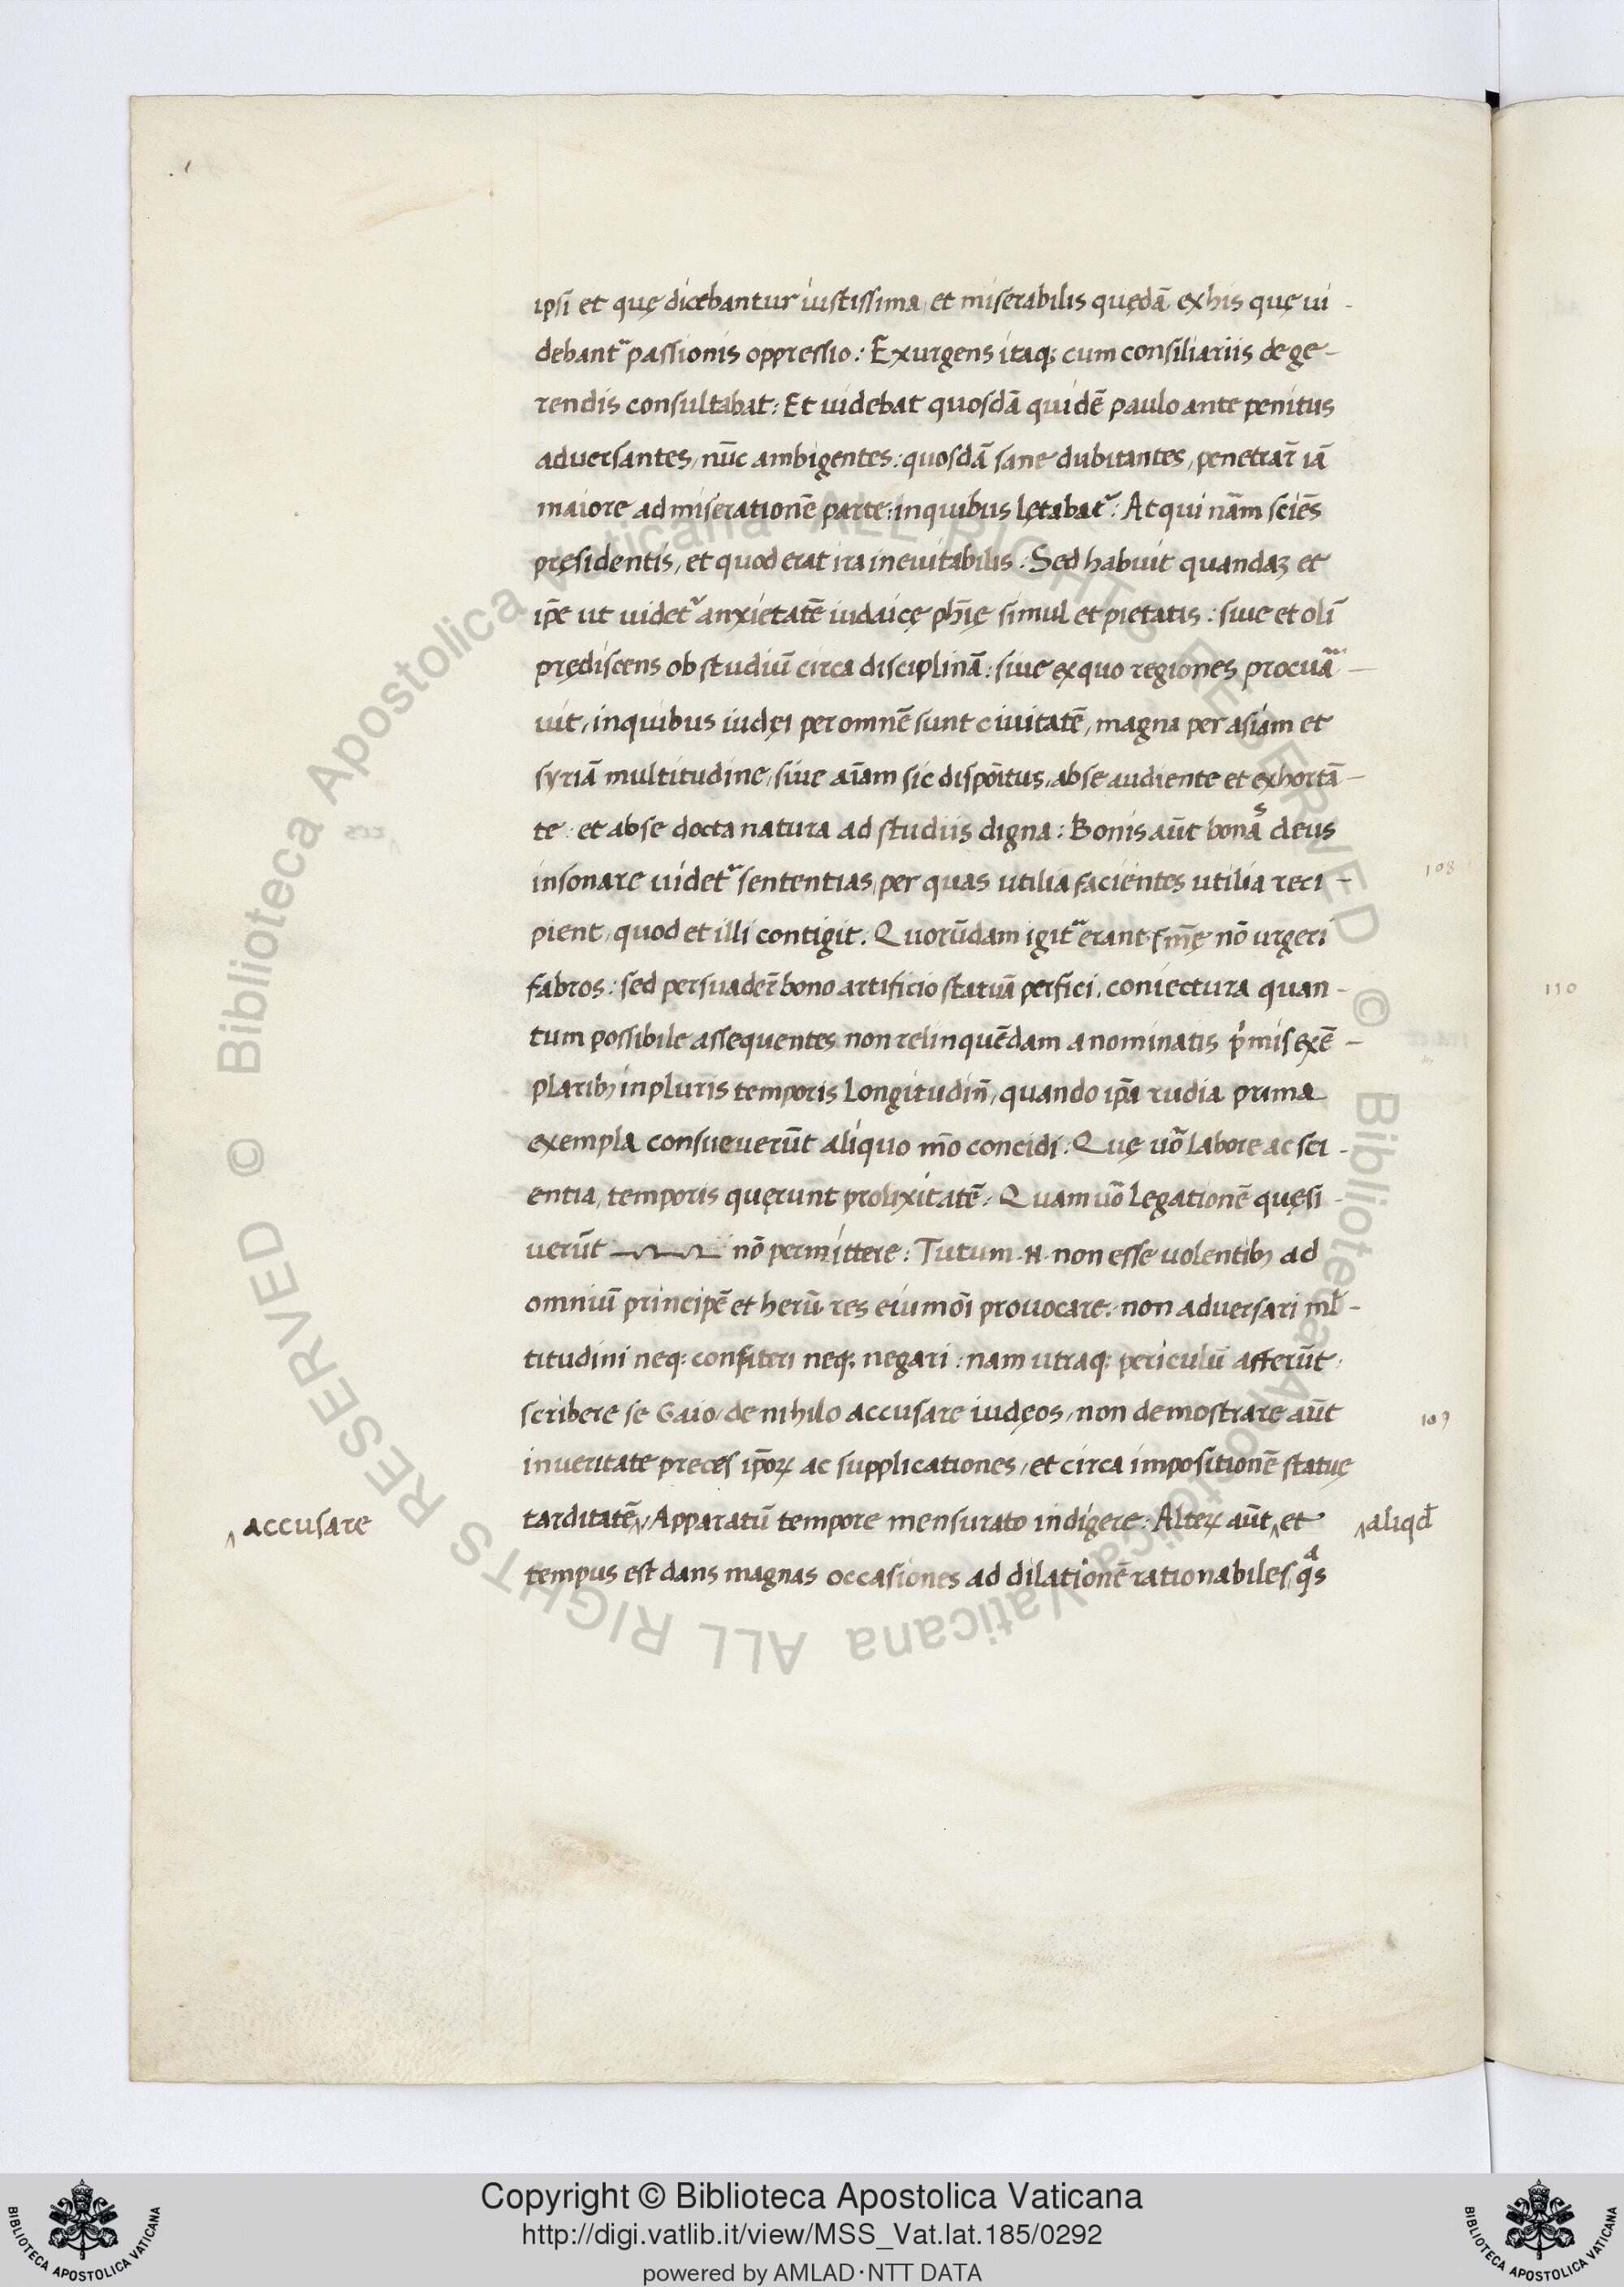 ipsi et quę dicebantur iustissima, et miserabilis quędā ex his quę ui-
debant᷑ passionis oppressio: Exurgens itaq; cum consiliariis de ge-
rendis consultabat: Et uidebat quosdā quidē paulo ante penitus
aduersantes, nūc ambigentes: quosdā sane dubitantes, penetrar̄ iā
maiore ad miserationē parte: in quibus lętabat᷑: Atqui nām sciēs
pręsidentis, et quod erat ira ineuitabilis. Sed habuit quandaʒ et
ip̄e ut uidet᷑ anxietatē iudaicę ph̄ię simul et pietatis: siue et olī
prędiscens ob studiū circa disciplinā: siue ex quo regiones procuā-
uit, in quibus iudęi per omnē sunt ciuitatē, magna per asiam et
syriā multitudine, siue aīam sic dispōitus, ab se audiente et exhortā-
te: et ab se docta natura ad studiis digna: Bonis aūt bonās deus
insonare uidet᷑ sententias, per quas utilia facientes utilia reci-
108
pient, quod et illi contigit. Quorūdam igit᷑ erant fm̄ę nō urgeri
fabros: sed persuader̄ bono artificio statuā perfici, coniectura quan-
110
tum possibile assequentes non relinquēdam a nominatis p̍mis exē-
plarib; in pluris temporis longitudin̄, quando ip̄a rudia prima
exempla consueuerūt aliquo m̄o concidi: Quę uō labore ac sci-
entia, temporis quęrunt prolixitatē: Quam uō legationē quęsi-
uerūt nō permittere: Tutum .N. non esse uolentib; ad
omniū principē et herū res eiumōi prouocare: non aduersari ml̄-
titudini neq: confiteri neq; negari: nam utraq; periculū afferūt:
scribere se Gaio, de nihilo accusare iudęos, non demostrare aūt
109
in ueritate preces ip̄oꝝ ac supplicationes, et circa impositionē statuę
^accusare
tarditatē^, Apparatū tempore mensurato indigere: Alteꝝ aūt^et
^aliqd̄
tempus est dans magnas occasiones ad dilationē rationabiles, qᵃs
Copyright © Biblioteca Apostolica Vaticana
http://digi.vatlib.it/view/MSS_Vat.lat.185/0292
powered by AMLAD·NTT DATA
BIBLIOTECA APOSTOLICA VATICANA
BIBLIOTECA APOSTOLICA VATICANA
© Biblioteca Apostolica Vaticana ALL RIGHTS RESERVED
© Biblioteca Apostolica Vaticana ALL RIGHTS RESERVED